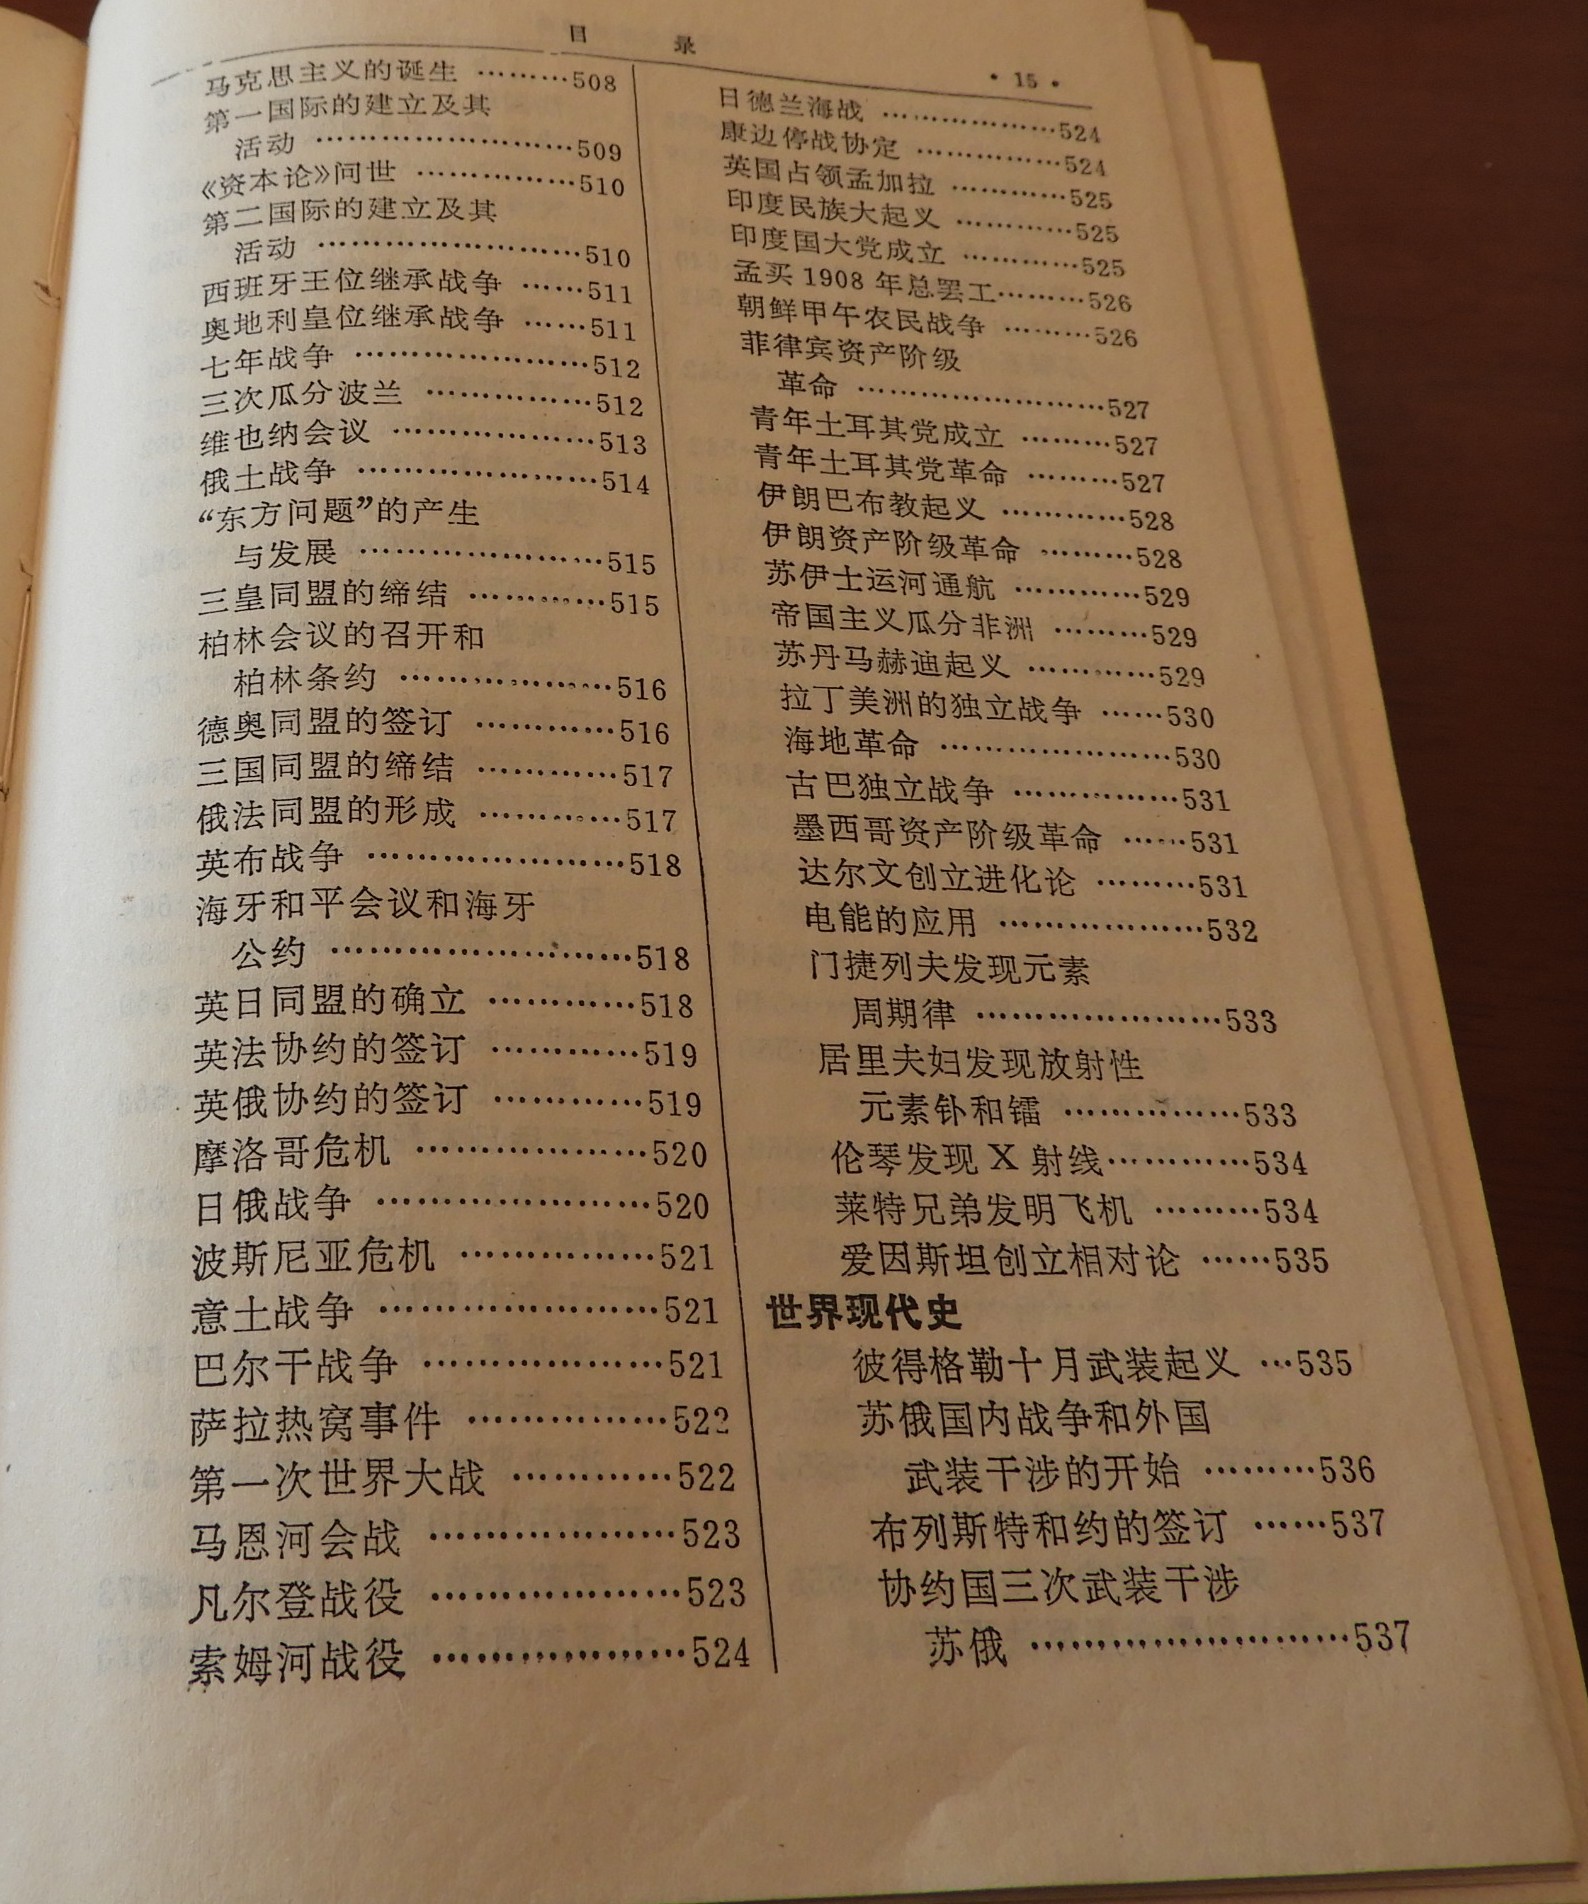 目 录
• 15 •
马克思主义的诞生 ………508
第一国际的建立及其
活动 ………………………509
《资本论》问世 ……………510
第二国际的建立及其
活动 ………………………510
西班牙王位继承战争 ……511
奥地利皇位继承战争 ……511
七年战争 ……………………512
三次瓜分波兰 ………………512
维也纳会议 …………………513
俄土战争 ……………………514
“东方问题”的产生
与发展 ……………………515
三皇同盟的缔结 …………515
柏林会议的召开和
柏林条约 …………………516
德奥同盟的签订 …………516
三国同盟的缔结 …………517
俄法同盟的形成 …………517
英布战争 ……………………518
海牙和平会议和海牙
公约 ………………………518
英日同盟的确立 …………518
英法协约的签订 …………519
英俄协约的签订 …………519
摩洛哥危机 …………………520
日俄战争 ……………………520
波斯尼亚危机 ……………521
意土战争 ……………………521
巴尔干战争 …………………521
萨拉热窝事件 ……………522
第一次世界大战 …………522
马恩河会战 …………………523
凡尔登战役 …………………523
索姆河战役 …………………524
日德兰海战 ………………524
康边停战协定 ……………524
英国占领孟加拉 …………525
印度民族大起义 …………525
印度国大党成立 …………525
孟买1908年总罢工………526
朝鲜甲午农民战争 ………526
菲律宾资产阶级
革命 ……………………527
青年土耳其党成立 ………527
青年土耳其党革命 ………527
伊朗巴布教起义 …………528
伊朗资产阶级革命 ………528
苏伊士运河通航 …………529
帝国主义瓜分非洲 ………529
苏丹马赫迪起义 …………529
拉丁美洲的独立战争 ……530
海地革命 ……………………530
古巴独立战争 ……………531
墨西哥资产阶级革命 ……531
达尔文创立进化论 ………531
电能的应用 …………………532
门捷列夫发现元素
周期律 ……………………533
居里夫妇发现放射性
元素钋和镭 ………………533
伦琴发现X射线…………534
莱特兄弟发明飞机 ………534
爱因斯坦创立相对论 ……535
世界现代史
彼得格勒十月武装起义 …535
苏俄国内战争和外国
武装干涉的开始 ………536
布列斯特和约的签订 ……537
协约国三次武装干涉
苏俄 ………………………537